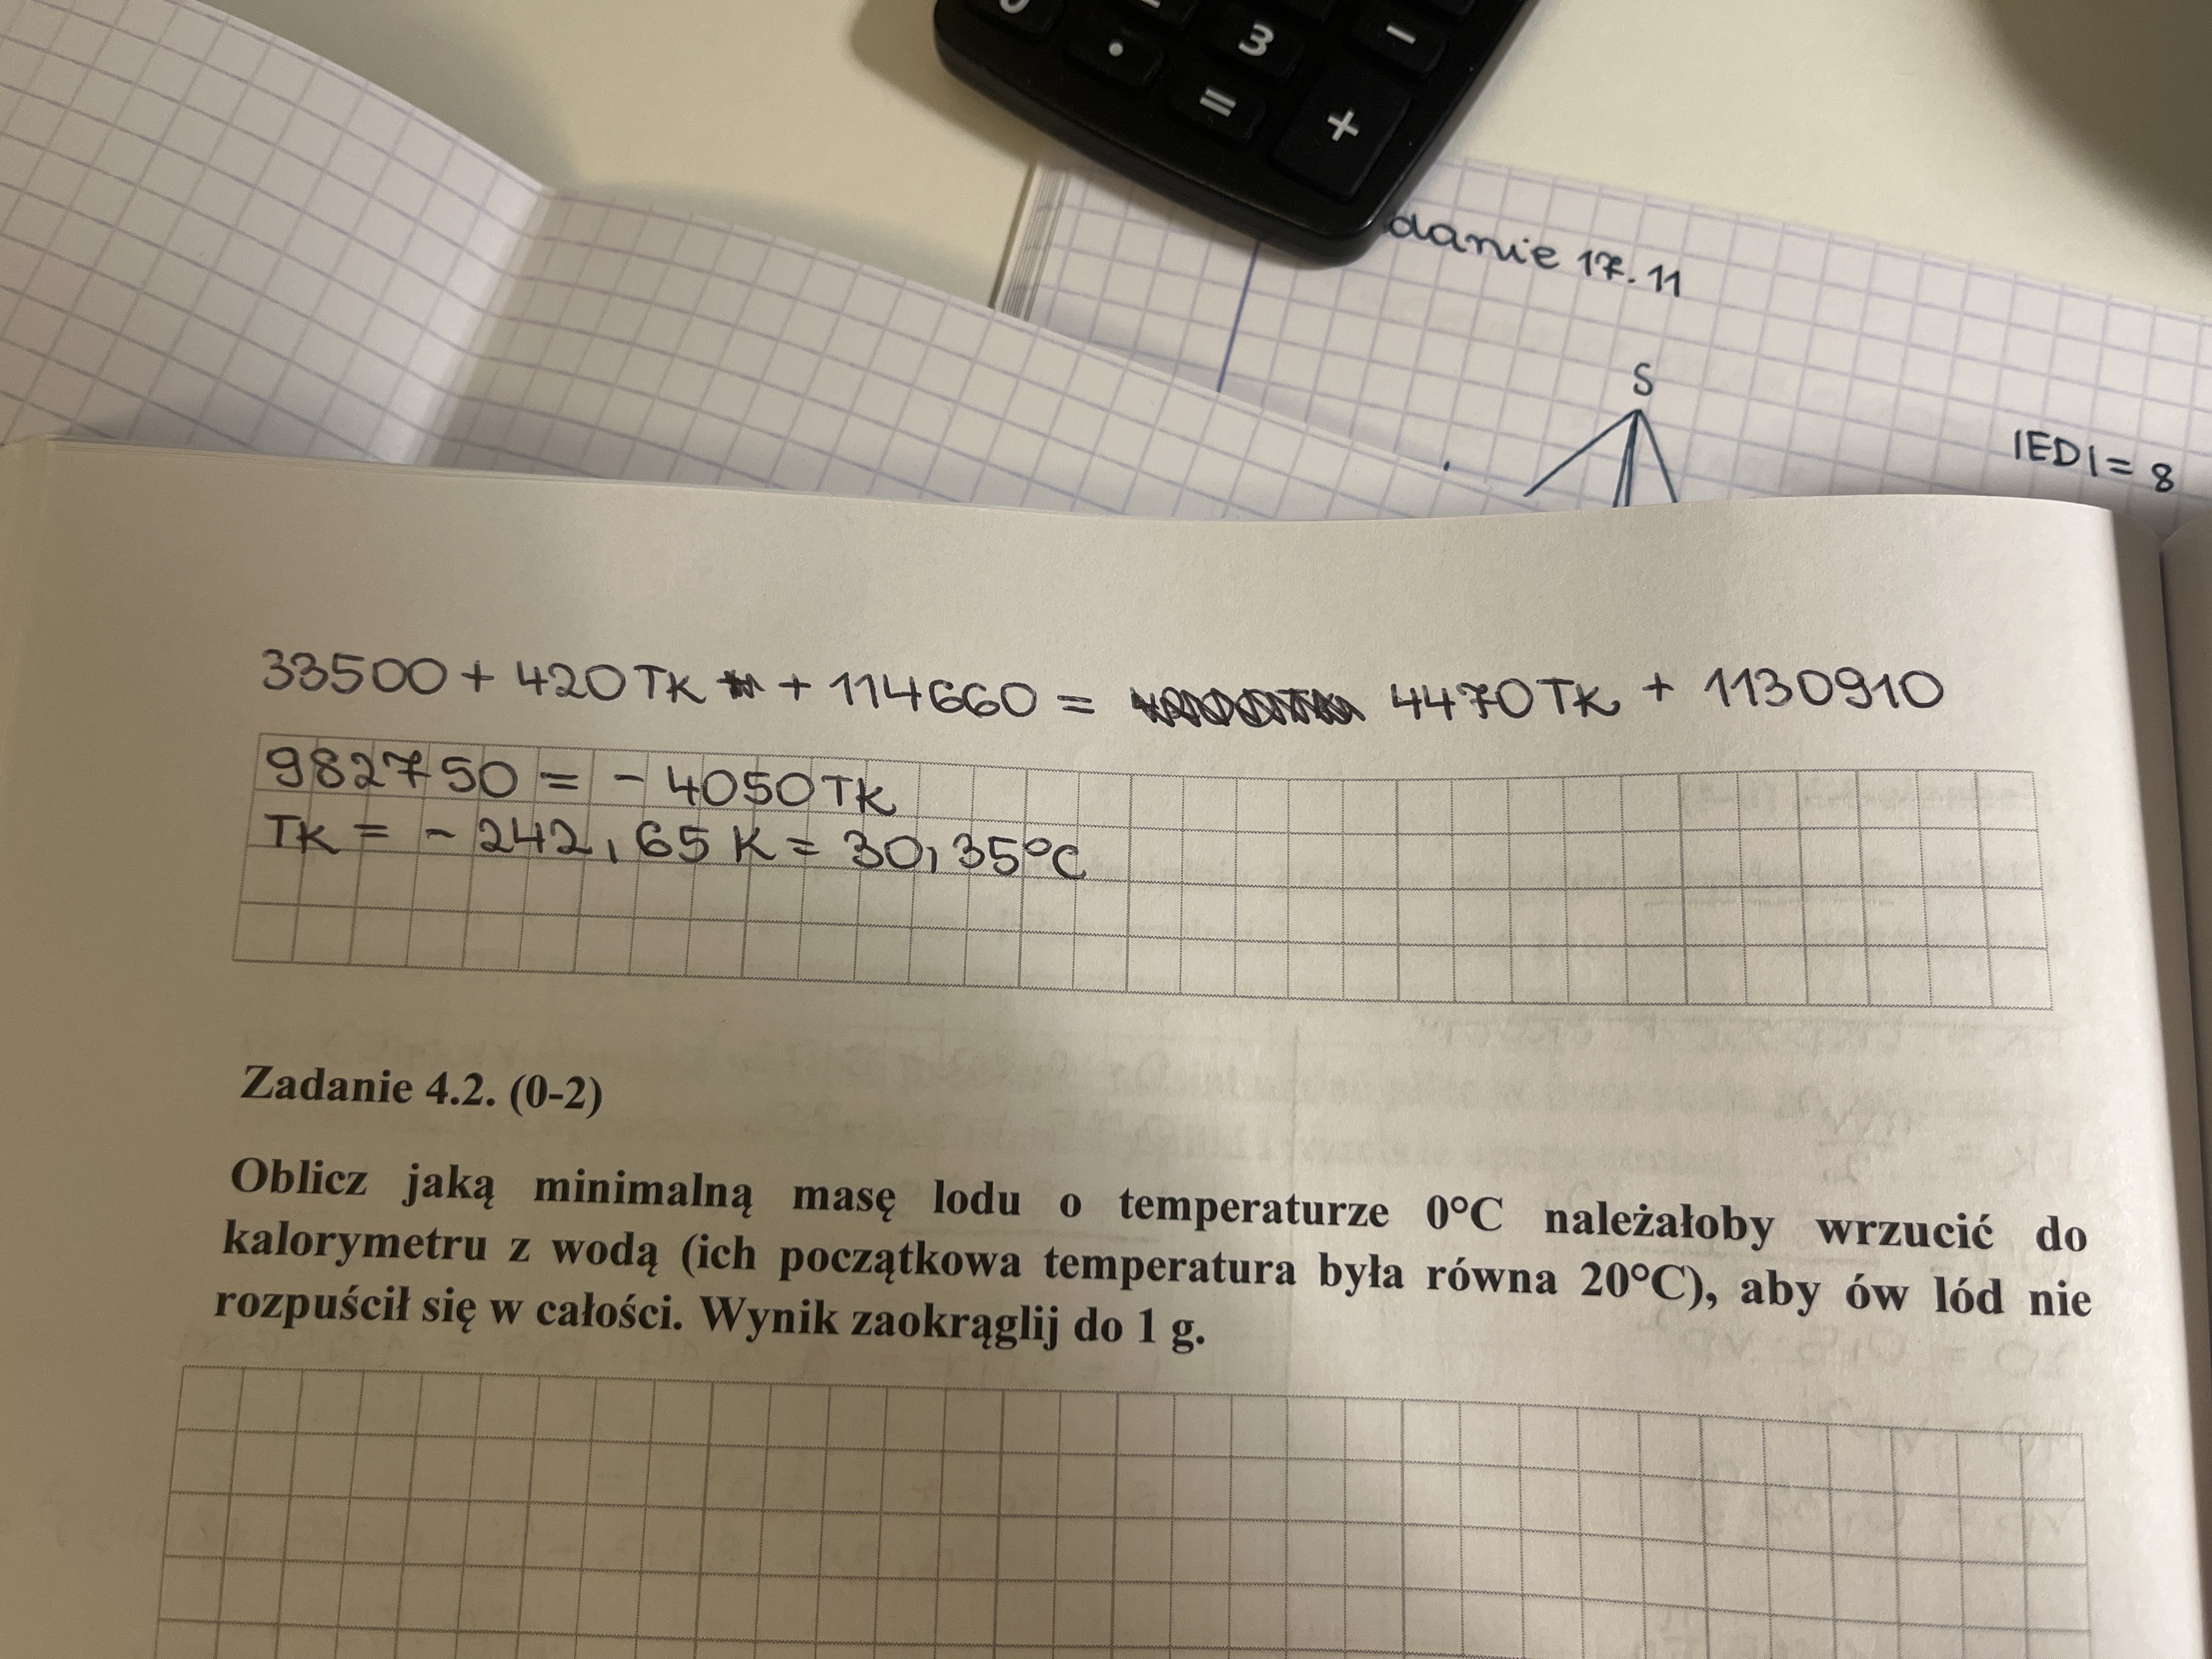 3 -
. = +
danie 17.11
S
|ED| = 8
33500 + 420 TK + 114660 = 4470 TK + 1130910
982750 = - 4050 TK
TK = - 242,65 K = 30,35°C
Zadanie 4.2. (0-2)
Oblicz jaką minimalną masę lodu o temperaturze 0°C należałoby wrzucić do
kalorymetru z wodą (ich początkowa temperatura była równa 20°C), aby ów lód nie
rozpuścił się w całości. Wynik zaokrąglij do 1 g.